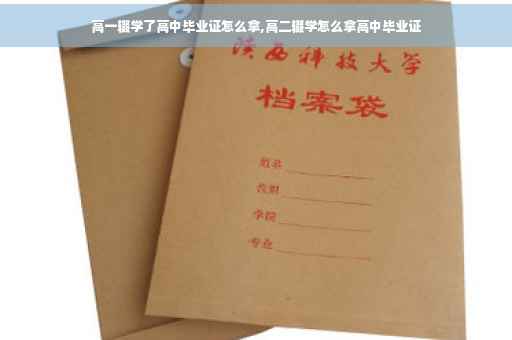 高一辍学了高中毕业证怎么拿,高二辍学怎么拿高中毕业证
陕西科技大学
档案袋
姓名
学院
专业